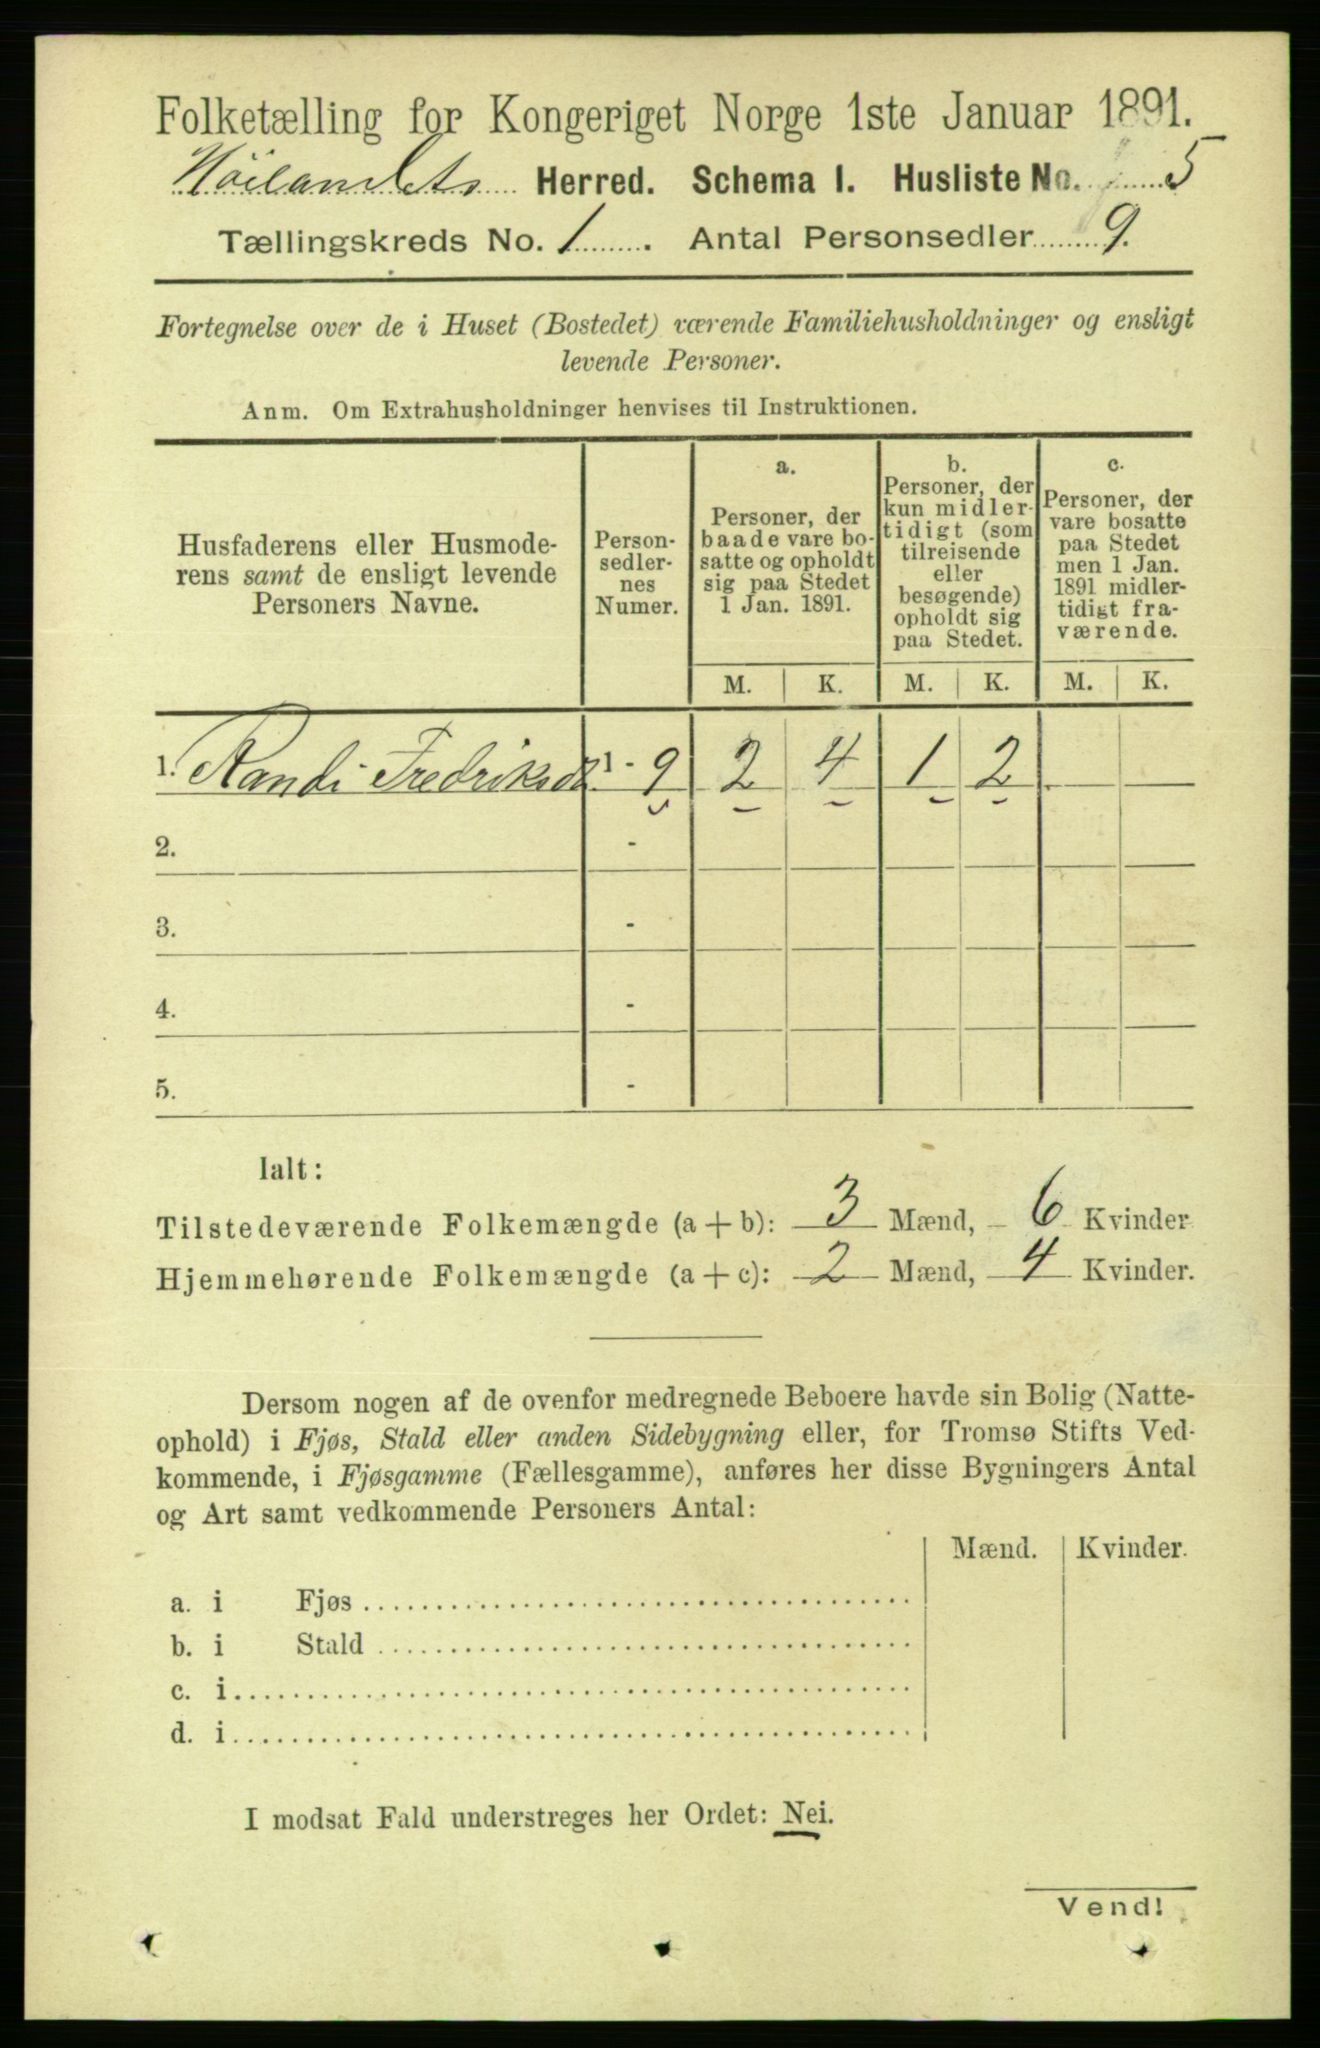 Folketælling for Kongeriget Norge 1ste Januar 1891.
Höilandets Herred. Schema 1. Husliste No. 5
Tællingskreds No. 1. Antal Personsedler 9.
Fortegnelse over de i Huset (Bostedet) værende Familiehusholdninger og ensligt
levende Personer.
Anm. Om Extrahusholdninger henvises til Instruktionen.
Husfaderens eller Husmode-
rens samt de ensligt levende
Personers Navne.
Person-
sedler-
nes
Numer.
a.
Personer, der
baade vare bo-
satte og opholdt
sig paa Stedet
1 Jan. 1891.
b.
Personer, der
kun midler-
tidigt (som
tilreisende
eller
besøgende)
opholdt sig
paa Stedet.
c.
Personer, der
vare bosatte
paa Stedet
men 1 Jan.
1891 midler-
tidigt fra-
værende.
M. K. M. K. M. K.
1. Randi Fredriksd. 1 - 9 2 4 1 2
2. -
3. -
4. -
5. -
Ialt:
Tilstedeværende Folkemængde (a + b): 3 Mænd, 6 Kvinder.
Hjemmehørende Folkemængde (a + c): 2 Mænd, 4 Kvinder.
Dersom nogen af de ovenfor medregnede Beboere havde sin Bolig (Natte-
ophold) i Fjøs, Stald eller anden Sidebygning eller, for Tromsø Stifts Ved-
kommende, i Fjøsgamme (Fællesgamme), anføres her disse Bygningers Antal
og Art samt vedkommende Personers Antal:
Mænd. Kvinder.
a. i Fjøs
b. i Stald
c. i
d. i
I modsat Fald understreges her Ordet: Nei.
Vend!